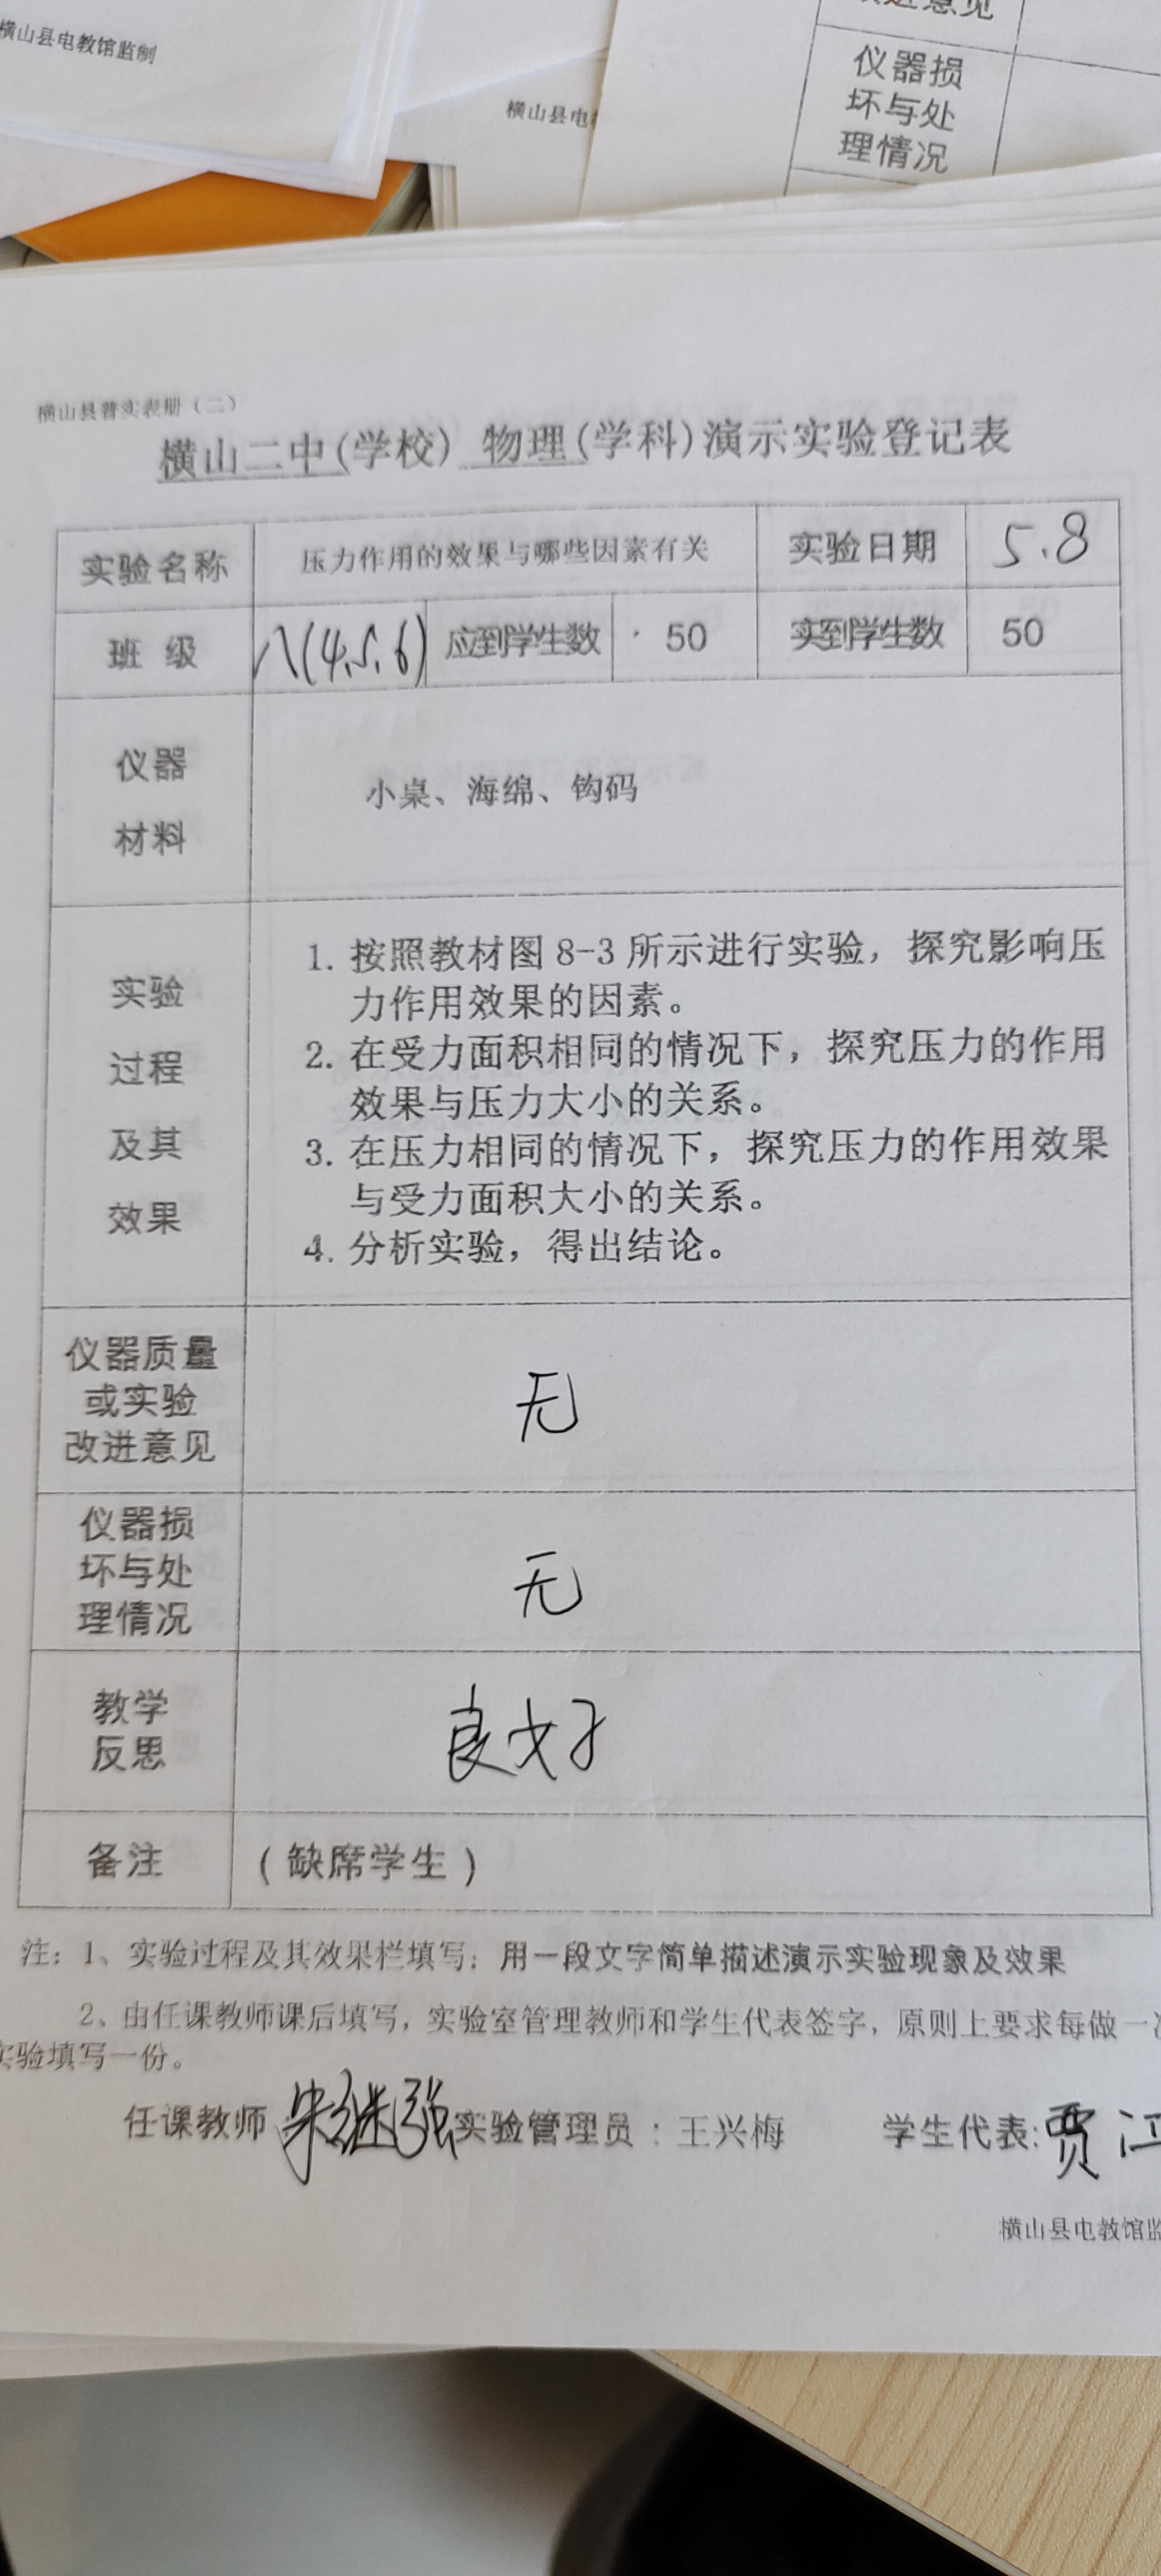 横山县电教馆监制
横山县电
改进意见
仪器损
坏与处
理情况
横山县普实表册（二）
横山二中(学校) 物理(学科)演示实验登记表
实验名称 压力作用的效果与哪些因素有关 实验日期 5.8
班 级 八(4.5.6) 应到学生数 50 实到学生数 50
仪器
材料
小桌、海绵、钩码
实验
过程
及其
效果
1. 按照教材图 8-3 所示进行实验，探究影响压
力作用效果的因素。
2. 在受力面积相同的情况下，探究压力的作用
效果与压力大小的关系。
3. 在压力相同的情况下，探究压力的作用效果
与受力面积大小的关系。
4. 分析实验，得出结论。
仪器质量
或实验
改进意见
无
仪器损
坏与处
理情况
无
教学
反思
良好
备注 （缺席学生）
注：1、实验过程及其效果栏填写：用一段文字简单描述演示实验现象及效果
2、由任课教师课后填写，实验室管理教师和学生代表签字，原则上要求每做一次
实验填写一份。
任课教师 朱继强 实验管理员：王兴梅 学生代表:贾江
横山县电教馆监